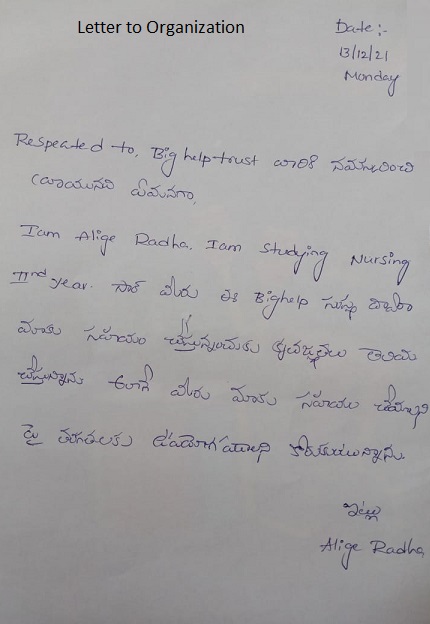 Letter to Organization
Date :-
13/12/21
Monday
Respeated to, Big help trust వారికి నమస్కరించి
వ్రాయునది ఏమనగా,
Iam Alige Radha. Iam studying Nursing
IInd year. సార్ మీరు ఈ Bighelp సంస్థ ద్వారా
మాకు సహయం చేస్తున్నందుకు కృతజ్ఞతలు తెలియ
చేస్తున్నాను అలాగే మీరు మాకు సహయం
పై తరగతులకు కోరుకుంటున్నాను.
ఇట్లు
Alige Radha